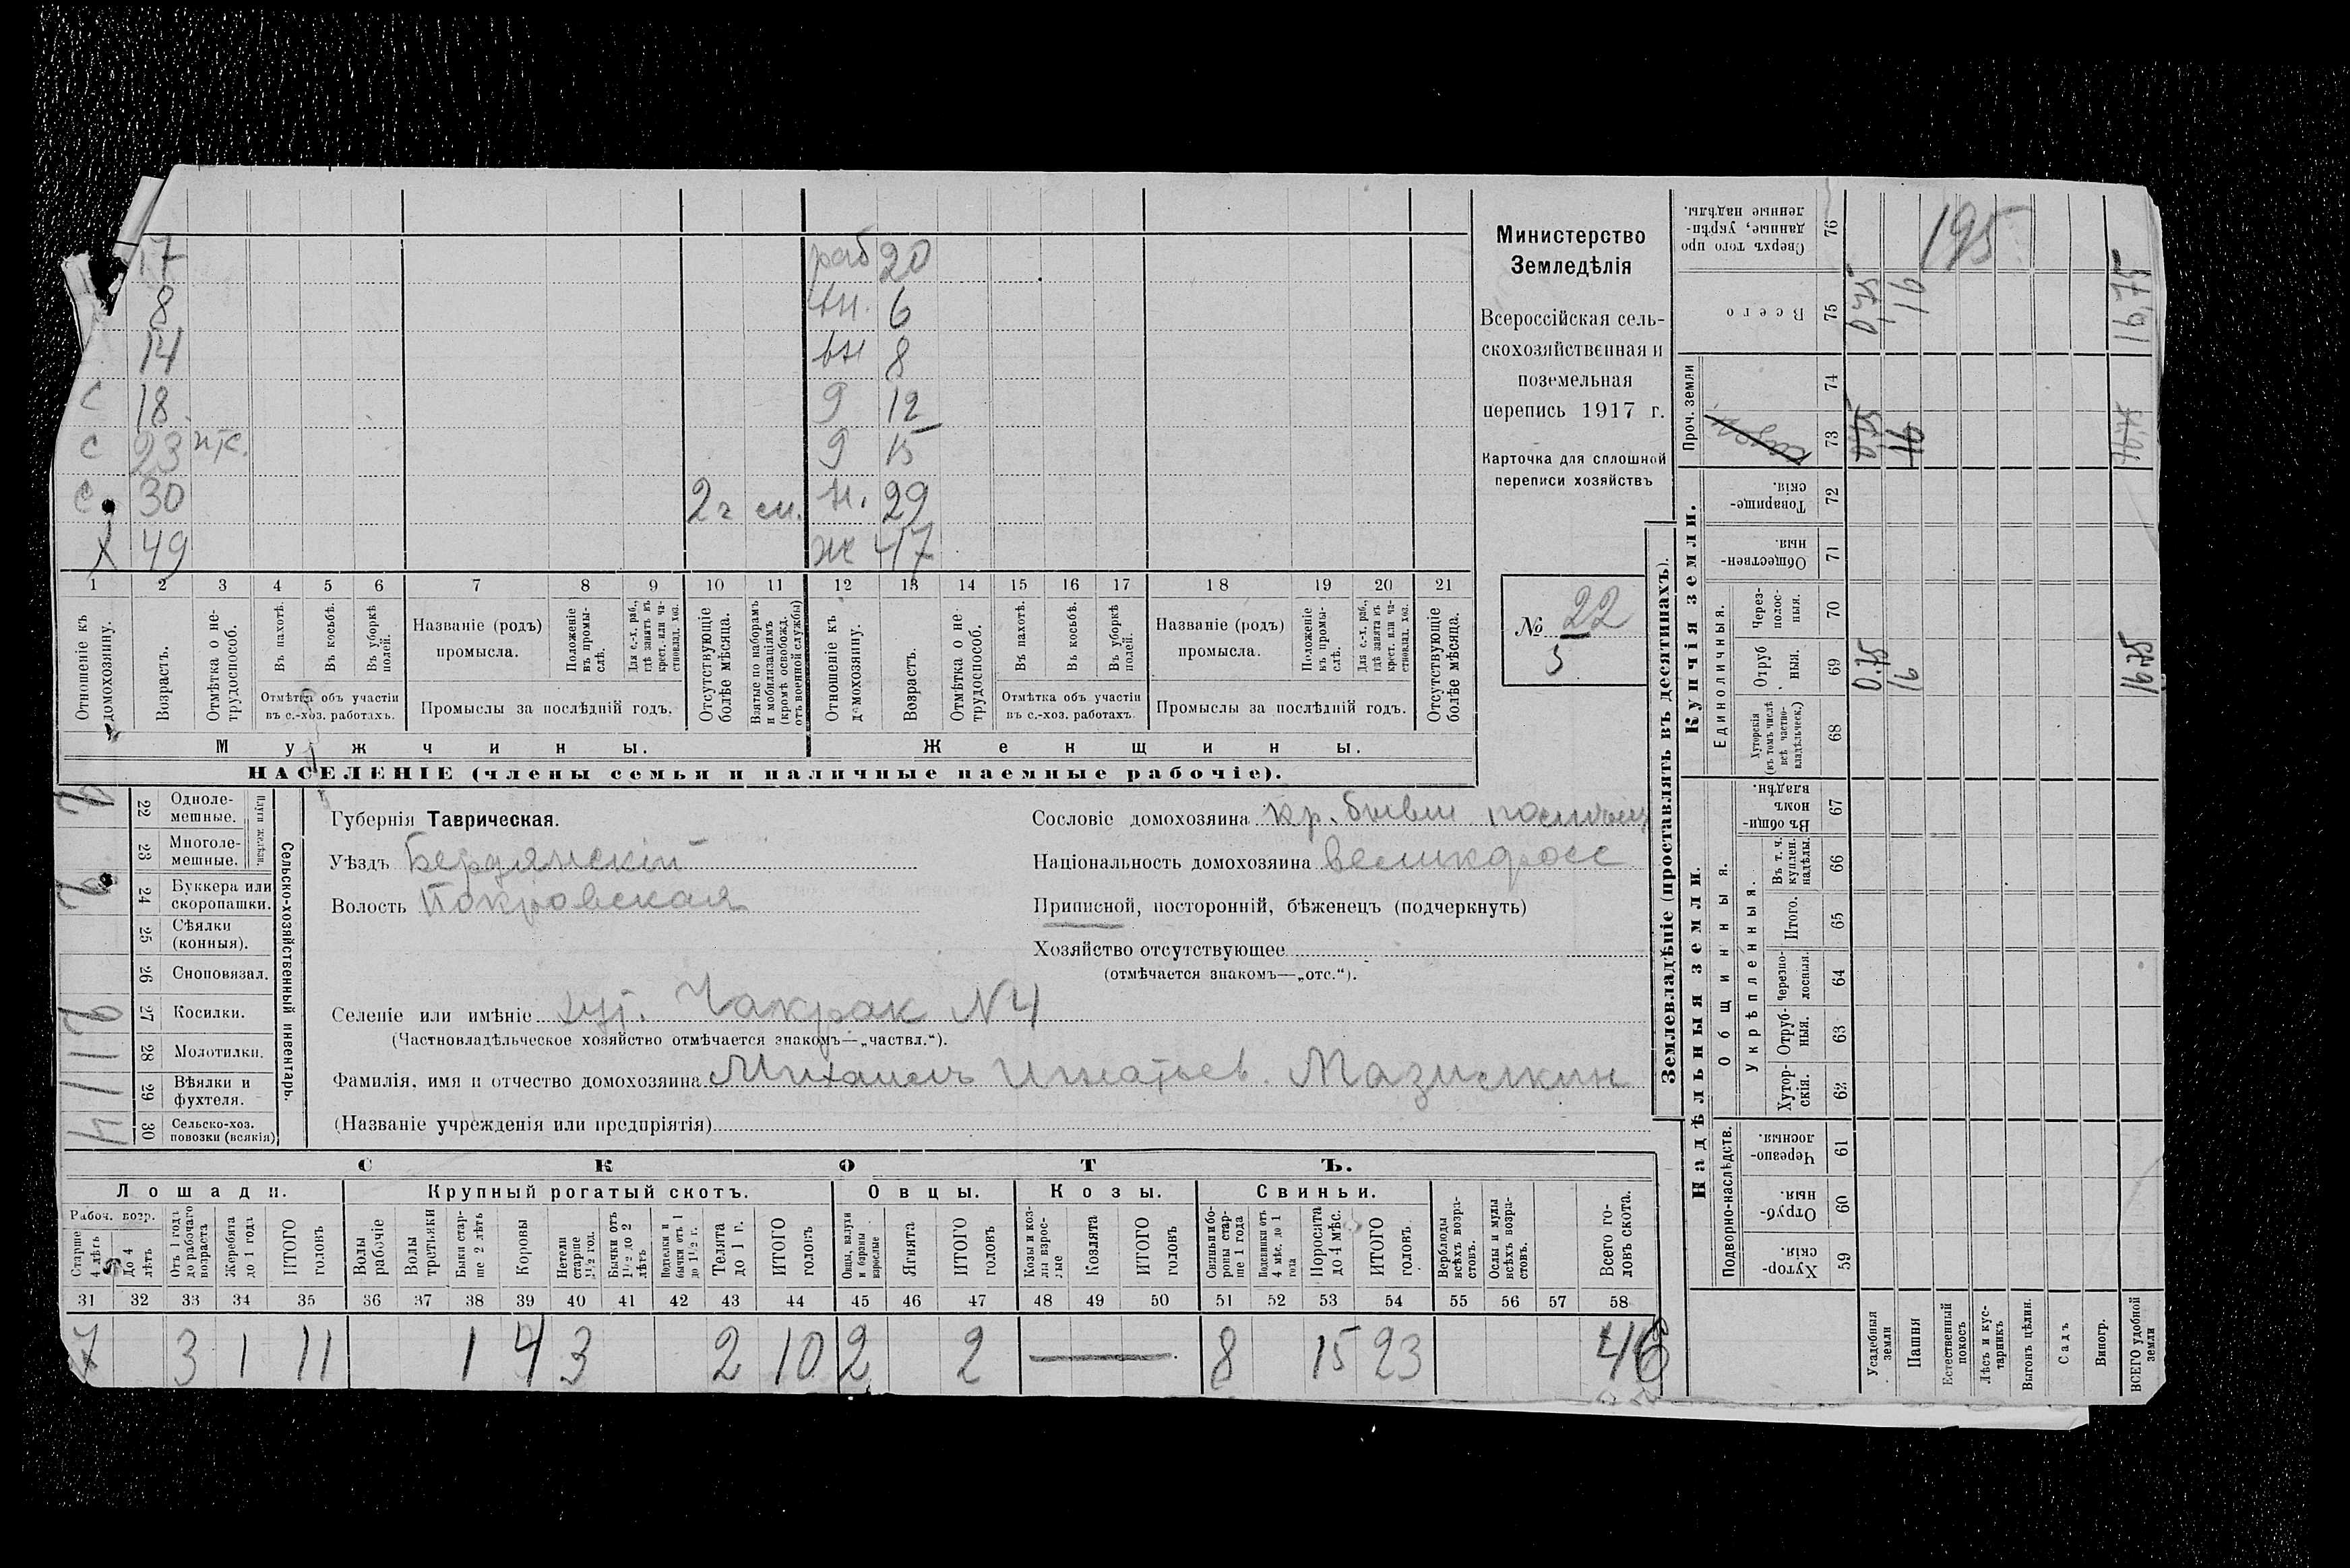 17 раб 20
8 вн. 6
14 вн 8
с 18 д 12
с 23 нтк. д 15
с. 30 2 г см. н. 29
х 49 ж 47
1 2 3 4 5 6 7 8 9 10 11 12 13 14 15 16 17 18 19 20 21
Отношеніе къ домохозяину.
Возрастъ.
Отмѣтка о не-трудоспособ.
Въ пахотѣ.
Въ косьбѣ.
Въ уборкѣ полей.
Отмѣтка объ участіи
въ с.-хоз. работахъ.
Названіе (родъ)
промысла.
Положеніе въ промы-слѣ.
Для с.-х. раб., гдѣ занятъ въ крест. или ча-стновлад. хоз.
Промыслы за послѣдній годъ.
Отсутствующіе болѣе мѣсяца.
Взятые по наборамъ и мобилизаціямъ (кромѣ освобожд. отъ военной службы)
Отношеніе къ домохозяину.
Возрастъ.
Отмѣтка о не трудоспособ.
Въ пахотѣ.
Въ косьбѣ.
Въ уборкѣ полей.
Отмѣтка объ участіи
въ с.-хоз. работахъ.
Названіе (родъ)
промысла.
Положеніе къ промы-слѣ.
Для с.-х. раб., гдѣ занята въ крест. или ча-стновлад. хоз.
Промыслы за послѣдній годъ.
Отсутствующіе болѣе мѣсяца.
Мужчины.
Женщины.
НАСЕЛЕНІЕ (члены семьи и наличные наемные рабочіе).
Министерство
Земледѣлія
Всероссійская сель-
скохозяйственная и
поземельная
перепись 1917 г.
Карточка для сплошной
переписи хозяйствъ
№ 22
5
Сельско-хозяйственный инвентарь.
Плуги желѣзн.
22 Одноле-мешные.
23 Многоле-мешные.
24 Буккера или скоропашки.
25 Сѣялки (конныя).
26 Сноповязал.
27 Косилки.
28 Молотилки.
29 Вѣялки и фухтеля.
30 Сельско-хоз. повозки (всякія)
2
2
2
1
1
4
Губернія Таврическая.
Уѣздъ Бердянскій
Волость Покровская
Сословіе домохозяина кр. бывш
Національность домохозяина великоросс
Приписной, посторонній, бѣженецъ (подчеркнуть)
Хозяйство отсутствующее
(отмѣчается знакомъ—„отс.“).
Селеніе или имѣніе хут. Чакрак N4
(Частновладѣльческое хозяйство отмѣчается знакомъ—„частвл.“).
Фамилія, имя и отчество домохозяина Михаилъ Игнатьев. Мазилкин
(Названіе учрежденія или предпріятія)
СКОТЪ.
Лошади. Крупный рогатый скотъ. Овцы. Козы. Свиньи.
Рабоч. возр.
Старше 4 лѣтъ
До 4 лѣтъ
Отъ 1 года до рабочаго возраста
Жеребята до 1 года
ИТОГО головъ
Волы рабочіе
Волы третьяки
Быки стар-ше 2 лѣтъ
Коровы
Нетели старше 1½ год.
Бычки отъ 1½ до 2 лѣтъ
Подтелки и бычки отъ 1 до 1½ г.
Телята до 1 г.
ИТОГО головъ
Овцы, валухи и бараны взрослые
Ягнята
ИТОГО головъ
Козы и коз-лы взрос-лые
Козлята
ИТОГО головъ
Свиньи и бо-ровы стар-ше 1 года
Подсвинки отъ 4 мѣс. до 1 года
Поросята до 4 мѣс.
ИТОГО головъ
Верблюды всѣхъ возра-стовъ.
Ослы и мулы всѣхъ возра-стовъ.
Всего го-ловъ скота.
31 32 33 34 35 36 37 38 39 40 41 42 43 44 45 46 47 48 49 50 51 52 53 54 55 56 57 58
7 3 1 11 1 4 3 2 10 2 2 — 8 15 23 46
Землевладѣніе (проставлять въ десятинахъ).
Надѣльныя земли.
Купчія земли.
Проч. земли
Подворно-наслѣдств.
Общинныя.
Укрѣпленныя.
Единоличныя.
59 Хутор-скія.
60 Отруб-ныя.
61 Черезпо-лосныя.
62 Хутор-скія.
63 Отруб-ныя.
64 Черезпо-лосныя.
65 Итого.
66 Въ т. ч. куплен. надѣлы.
67 Въ общин-номъ владѣн.
68 Хуторскія (въ томъ числѣ всѣ частно-владѣльческ.)
69 Отруб ныя.
70 Через-полос-ныя.
71 Обществен-ныя.
72 Товарище-скія.
73
74
75 Всего
76 Сверхъ того про данные, укрѣп-ленные надѣлы.
Усадебныя земли 0.75 0,75 0,75
Пашня 16 16 16
Естественный покосъ
Лѣсъ и кус-тарникъ
Выгонъ цѣлин.
Садъ
Виногр.
ВСЕГО удобной земли 16.75 16,75 16,75
195